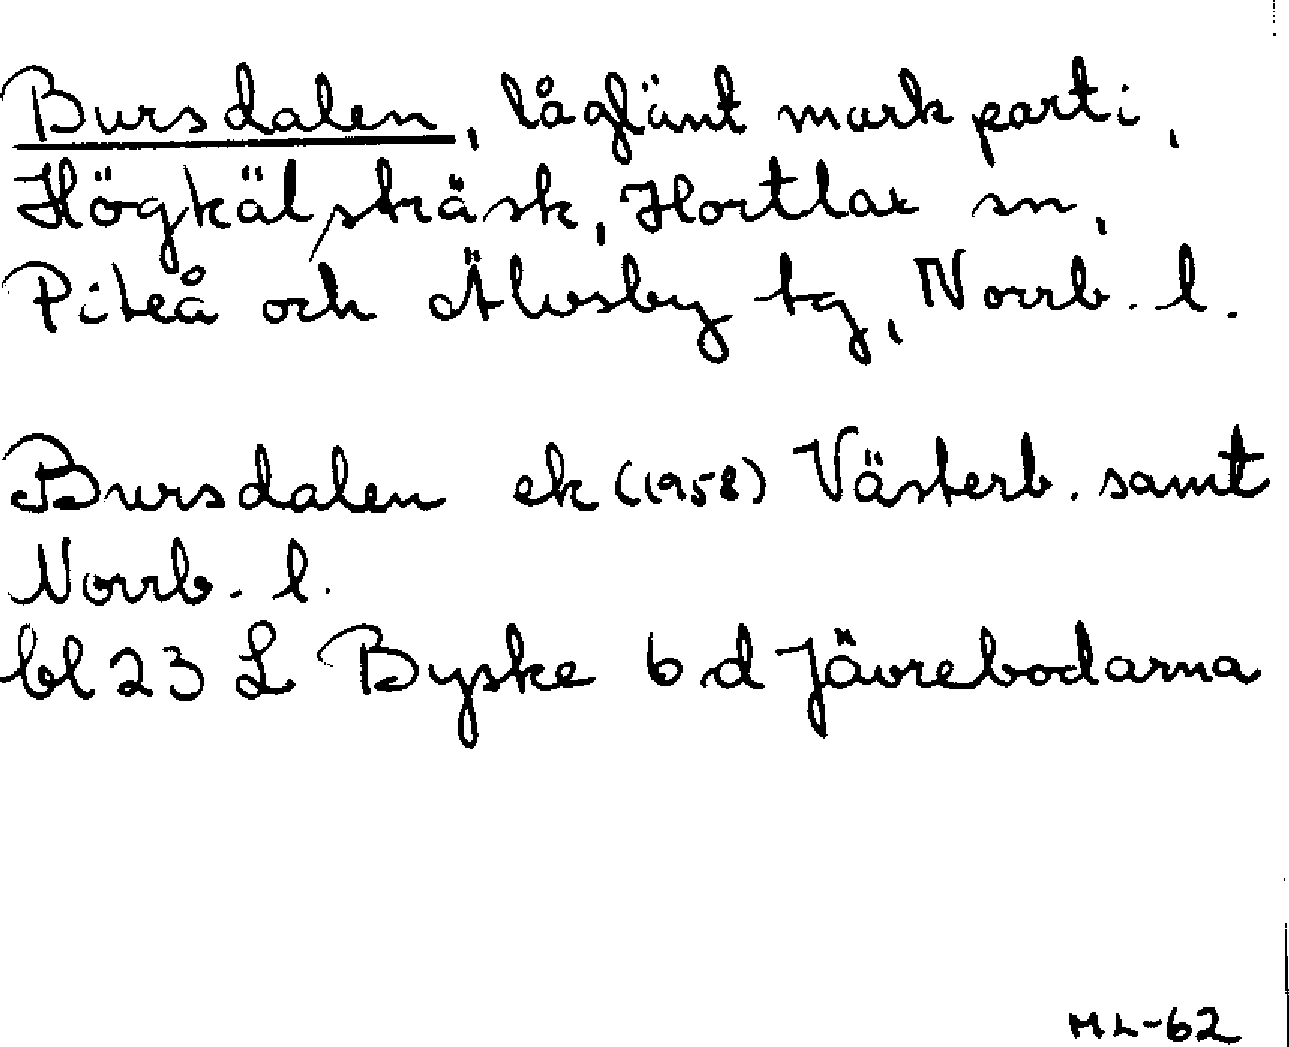 Bursdalen, låglänt markparti,
Högkälsträsk, Hortlax sn,
Piteå och Älvsby tg, Norrb. l.
Bursdalen ek (1958) Västerb. samt
Norrb. l.
bl 23 L Byske 6 d Jävrebodarna
ML-62